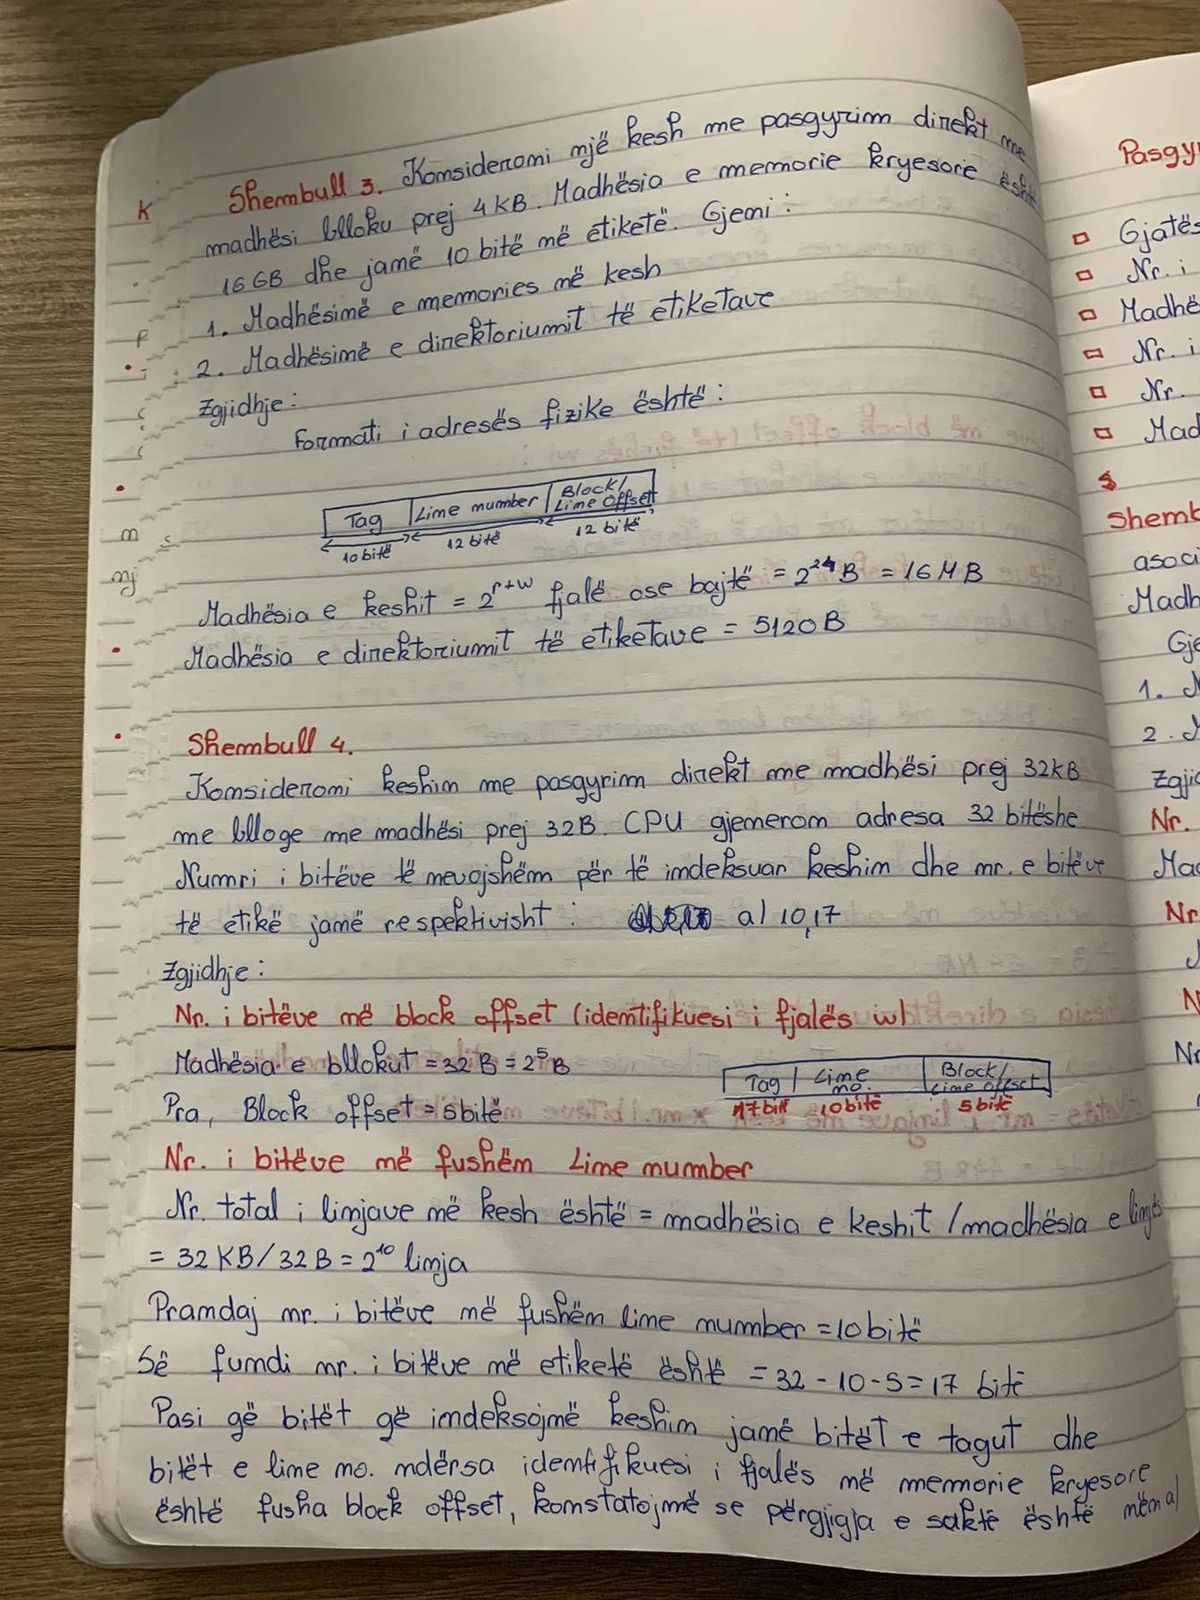 Shembull 3. Konsideromi një kesh me pasqyrim direkt me
madhësi blloku prej 4KB. Madhësia e memorie kryesore është
16GB dhe janë 10 bitë në etiketë. Gjeni:
1. Madhësinë e memories në kesh
2. Madhësinë e direktoriumit të etiketave
Zgjidhje:
Formati i adresës fizike është:
Tag | Line number | Block/Line Offset
10 bitë 12 bitë 12 bitë
Madhësia e keshit = 2^r+w fjalë ose bajtë = 2^24 B = 16MB
Madhësia e direktoriumit të etiketave = 5120B
Shembull 4.
Konsideromi keshin me pasqyrim direkt me madhësi prej 32KB
me blloqe me madhësi prej 32B. CPU gjeneron adresa 32 bitëshe
Numri i bitëve të nevojshëm për të indeksuar keshin dhe nr. e bitëve
të etikë janë respektivisht: a) 10,17
Zgjidhje:
Nr. i bitëve në block offset (identifikuesi i fjalës w)
Madhësia e bllokut = 32 B = 2^5 B
Pra, Block offset = 5bitë
Tag | Line no. | Block/Line offset
17bit 10bitë 5bitë
Nr. i bitëve në fushën Line number
Nr. total i linjave në kesh është = madhësia e keshit / madhësia e linjës
= 32 KB/32 B = 2^10 linja
Prandaj nr. i bitëve në fushën line number = 10 bitë
Së fundi nr. i bitëve në etiketë është = 32 - 10 - 5 = 17 bitë
Pasi që bitët që indeksojnë keshin janë bitët e tagut dhe
bitët e line no. ndërsa identifikuesi i fjalës në memorie kryesore
është fusha block offset, konstatojmë se përgjigja e saktë është nën a)
Pasqy
Gjatës
Nr. i
Madhë
Nr. i
Nr.
Mad
Shemb
asoci
Madh
Gje
1. N
2. M
Zgjid
Nr.
Mad
Nr.
N
Nr